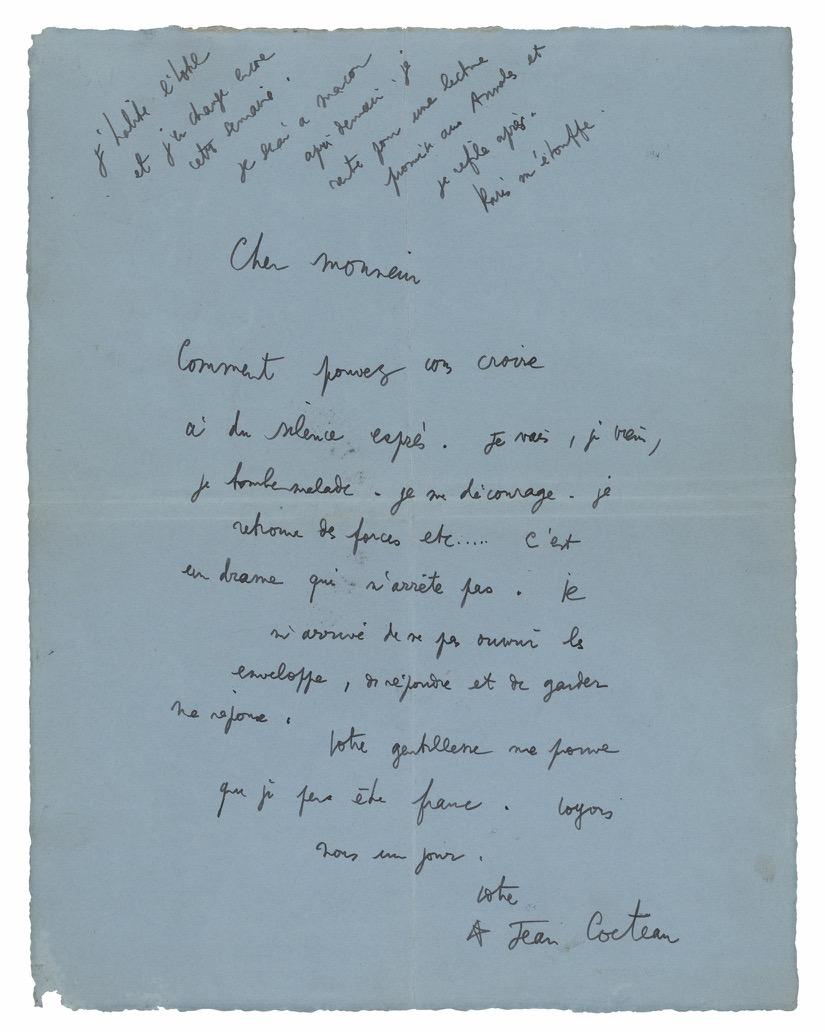 j'habite l'hôtel
et j'en change encore
cette semaine.
je serai a macon
après demain. je
rentre pour une lecture
promise aux Annales et
je refile après.
Paris m'étouffe.
Cher monsieur
Comment pouvez vous croire
a du silence exprès. Je vais, je viens,
je tombe malade. je me décourage. je
retrouve des forces etc..... C'est
un drame qui n'arrête pas. Je
m'arrive de ne pas ouvrir les
enveloppe, de répondre et de garder
ma réponse.
Votre gentillesse me prouve
que je peux être franc. Voyons
nous un jour.
votre
Jean Cocteau